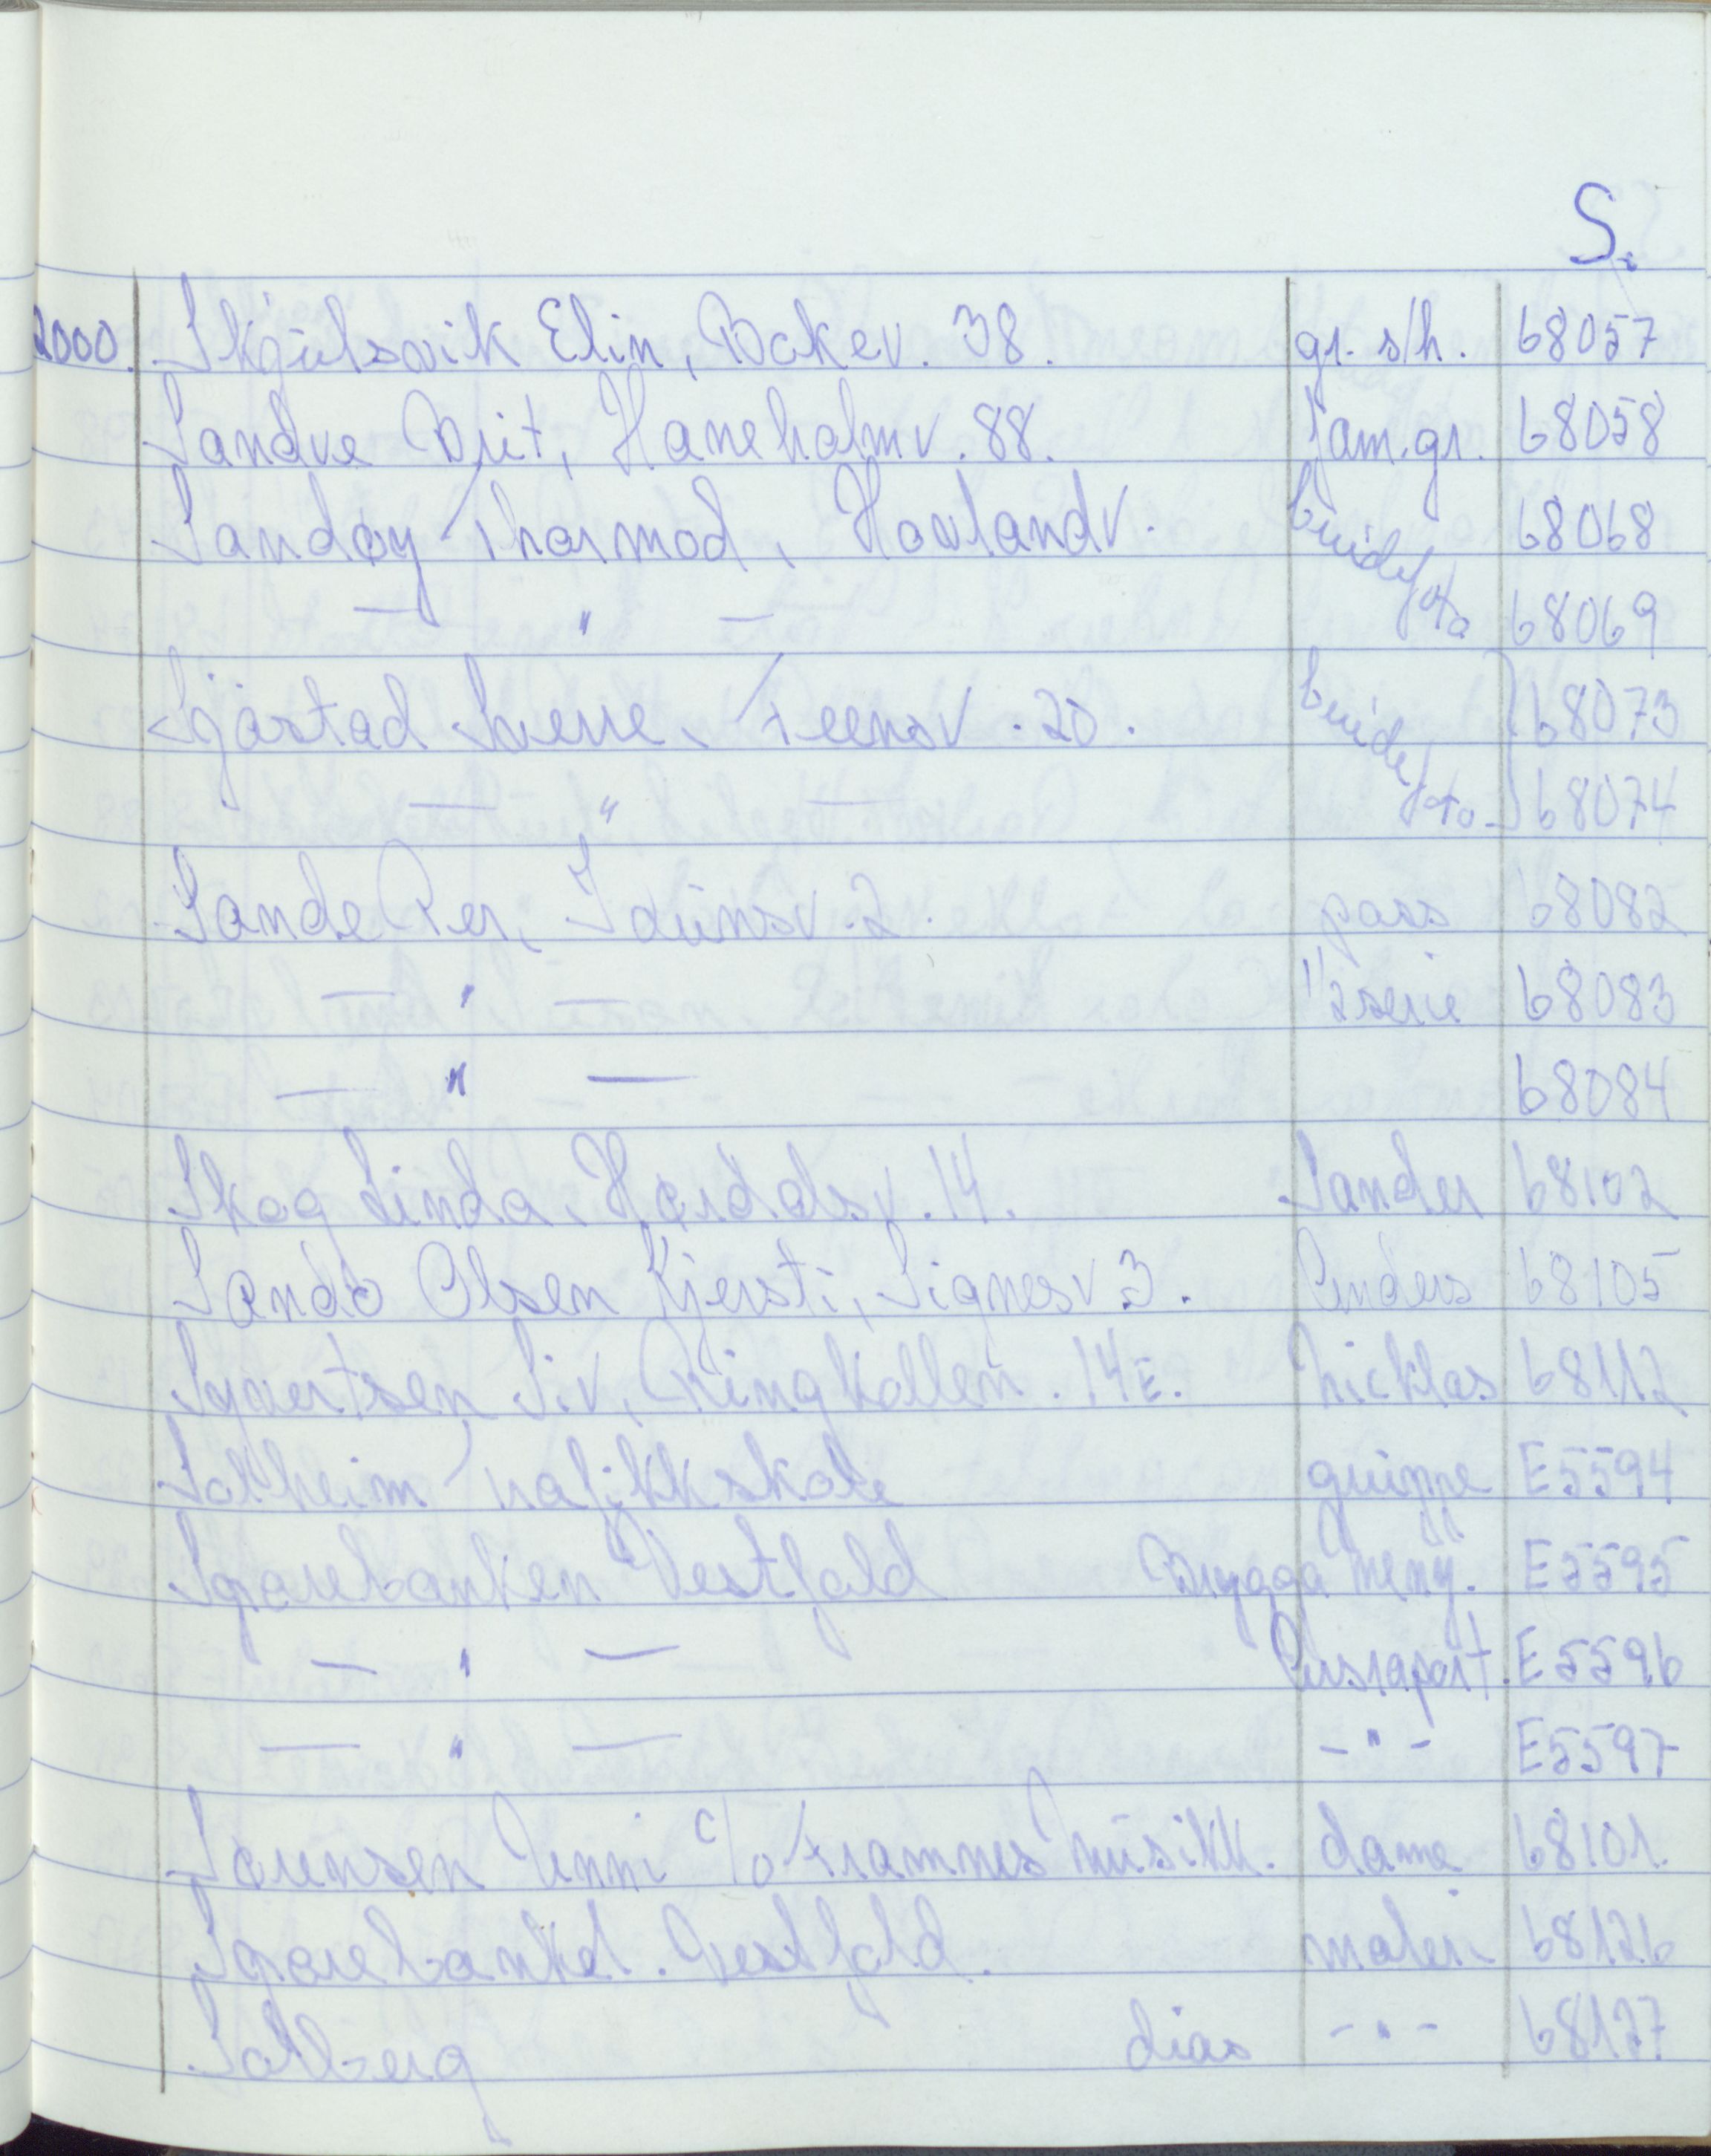 S.
2000. Skjülsvik Elin, Bekkev. 38. gr. s/h. 68057
Sandve Brit, Haneholmv. 88. fam.gr. 68058
Sandøy Thormod, Hovlandv. brudef 68068
— " — oto 68069
Sjøstad Sverre, Feensv. 20. brudef 68073
— " — oto 68074
Sande Per, Idünsv. 2. pass 68082
— " — 1/2 serie 68083
— " — 68084
Skog Linda, 14. Sander 68102
Sandø Olsen Kjersti, Signesv 3. Anders 68105
Syvertsen Siv, Ringkollen. 14E. Nicklas 68112
Solheim Trafikkskole grüppe E5594
Sparebanken Vestfold Brygga meny. E5595
— " — Årsraport. E5596
— " — - " - E5597
Sørensen Unni c/o Framnes Müsikk. dame 68101.
Sparebanken. Vestfold. maleri 68126
Solberg dias - " - 68127